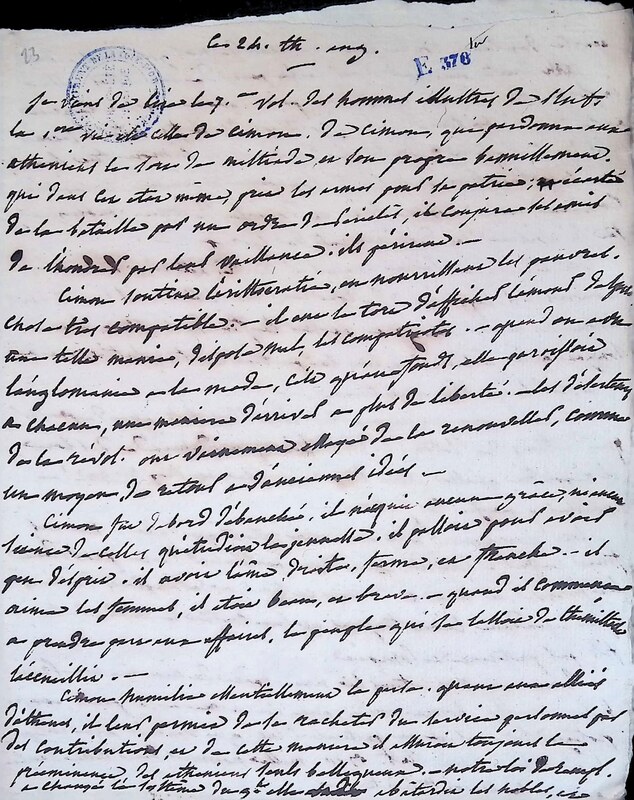 23
ce 24. th. ang.
E 376 bis
je viens de lire le 7.me vol. des hommes illustres de Plut.
la 1ere vie est celle de cimon. de cimon, qui pardonna aux
athéniens la mort de miltiade, et son propre bannissement.
qui dans cet état même, prit les armes pour sa patrie, et écarté
de la bataille par un ordre de Periclès, il conjura ses amis
de l'honorer par leur vaillance. ils périrent. —
Cimon soutint l'aristocratie, en nourrissant les pauvres.
chose très compatible. — il eut le tort d'afficher l'amour de Sparte
une telle manie, dispose mal, les compatriotes. — quand on a vu
l'anglomanie à la mode, c'est qu'au fond, elle paroissoit
à chacun, une manière d'arriver à plus de liberté. — les détracteurs
de la révol. ont vainement essayé de la renouveller, comme
un moyen de retour à d'anciennes idées. —
Cimon fut d'abord débauché. il n'acquit aucune grâce, ni aucune
science de celles qu'étudioit la jeunesse, il passoit pour avoir
peu d'esprit. il avoit l'âme droite, ferme, et franche. — il
aima les femmes, il étoit beau, et brave. — quand il commença
à prendre part aux affaires, le peuple qui se lassoit de thémistocle
l'accueillit. —
Cimon humilia essentiellement la perse. quant aux alliés
d'athènes, il leur permit de se racheter du service personnel par
des contributions, et de cette manière il assura toujours la
prééminence, des athéniens seuls belliqueux. — notre loi de rempl.
a changé le système du q.el elle abatardir les nobles, et